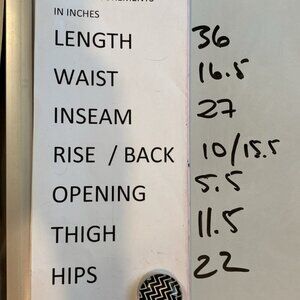 IN INCHES
LENGTH 36
WAIST 16.5
INSEAM 27
RISE / BACK 10/15.5
OPENING 5.5
THIGH 11.5
HIPS 22